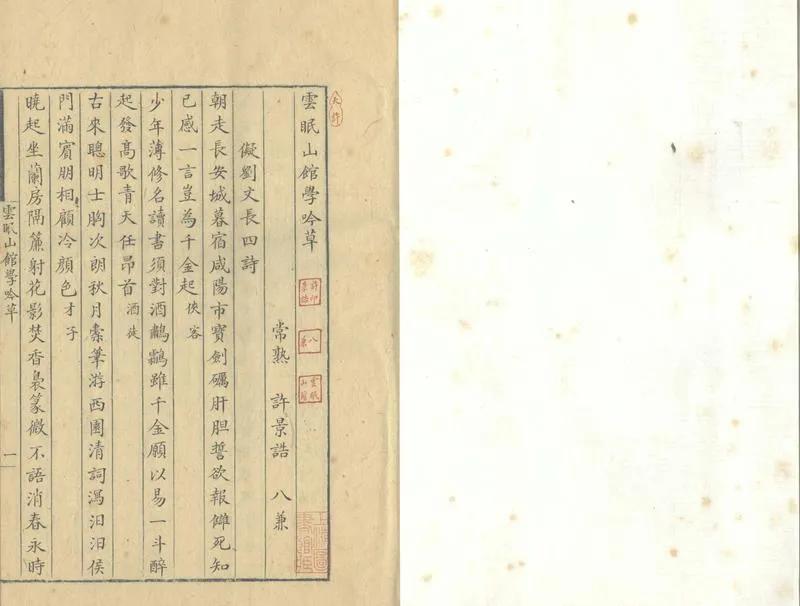 大許
雲眠山館學吟草
許印景誥
八兼
雲眠山館
常熟 許景誥 八兼
儗劉文長四詩
朝走長安城暮宿咸陽市寶劍礪肝胆誓欲報雠死知
已感一言豈為千金起 俠客
少年薄修名讀書須對酒鷫鸘雖千金願以易一斗醉
起發高歌青天任昂首 酒徒
古來聰明士胸次朗秋月橐筆游西園清詞瀉汩汩侯
門滿賓朋相顧冷顏色 才子
曉起坐蘭房隔簾射花影焚香裊篆微不語消春永時
雲眠山館學吟草 一